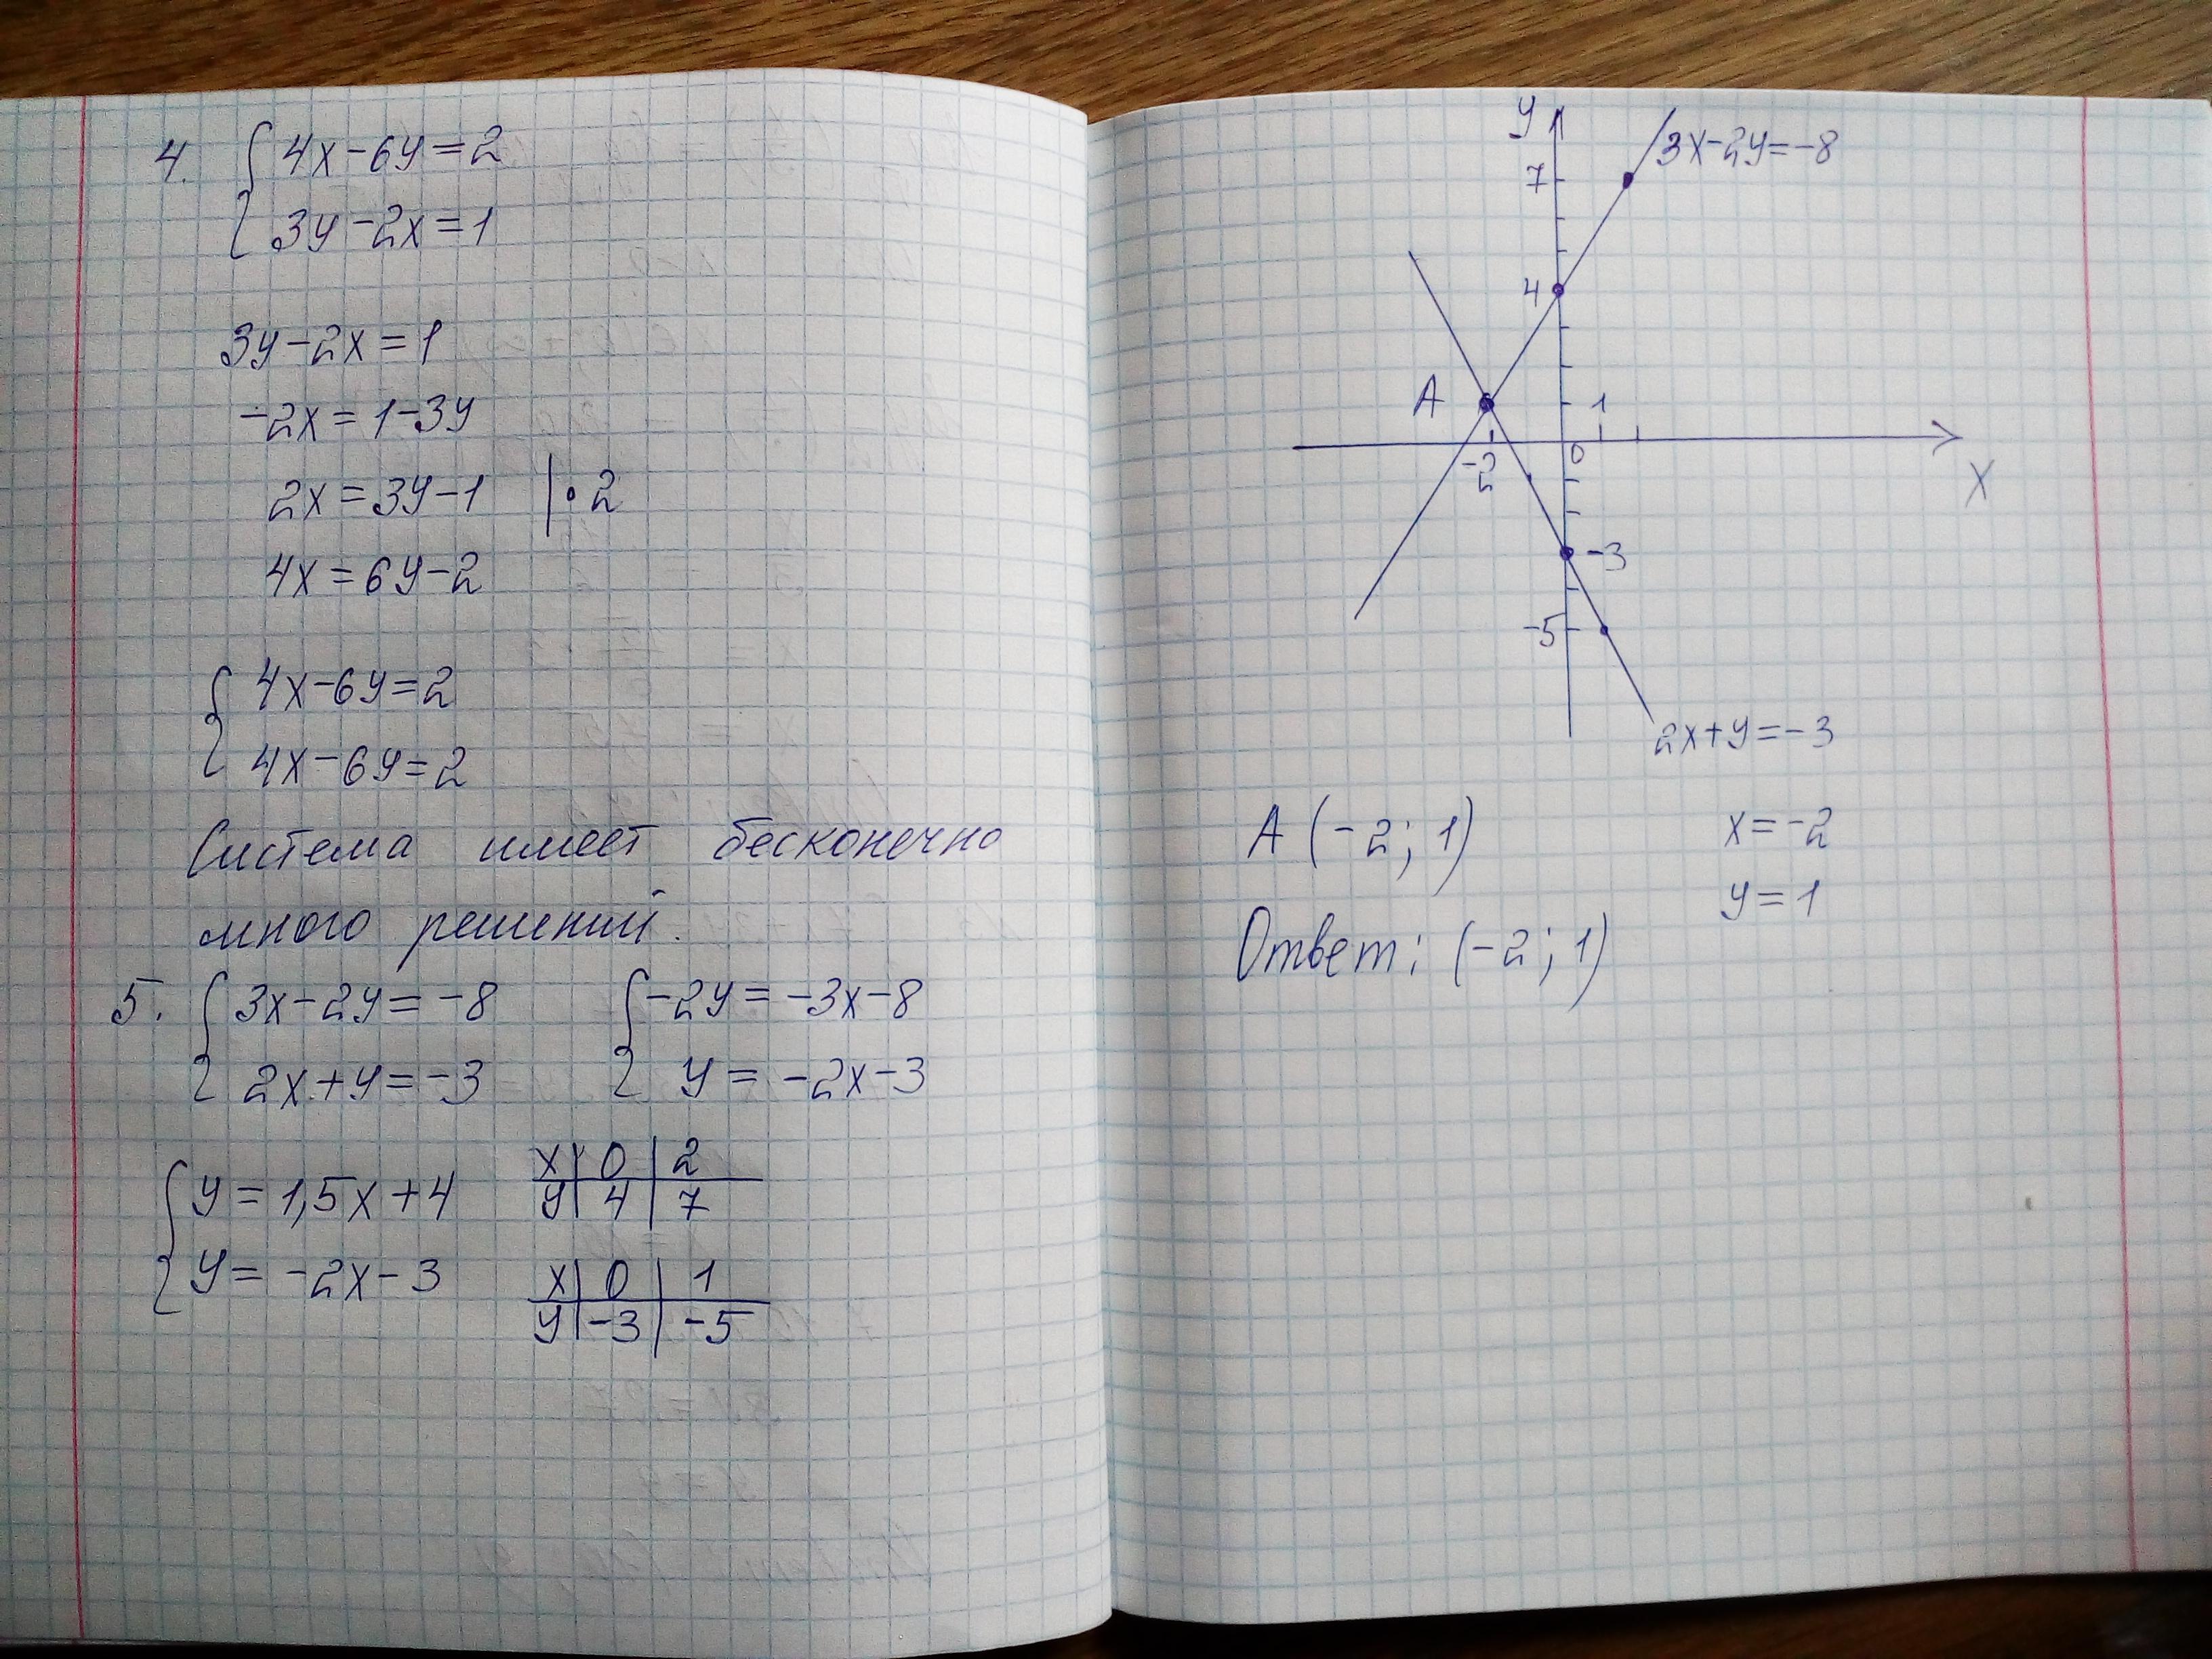 4. { 4x-6y=2
3y-2x=1
3y-2x=1
-2x=1-3y
2x=3y-1 | • 2
4x=6y-2
{ 4x-6y=2
4x-6y=2
Система имеет бесконечно
много решений.
5. { 3x-2y=-8 { -2y=-3x-8
2x+y=-3 y=-2x-3
{ y=1,5x+4
y=-2x-3
x | 0 | 2
y | 4 | 7
x | 0 | 1
y | -3 | -5
y
3x-2y=-8
7
4
A
1
-2
0
x
-3
-5
2x+y=-3
A (-2; 1) x=-2
y=1
Ответ: (-2; 1)